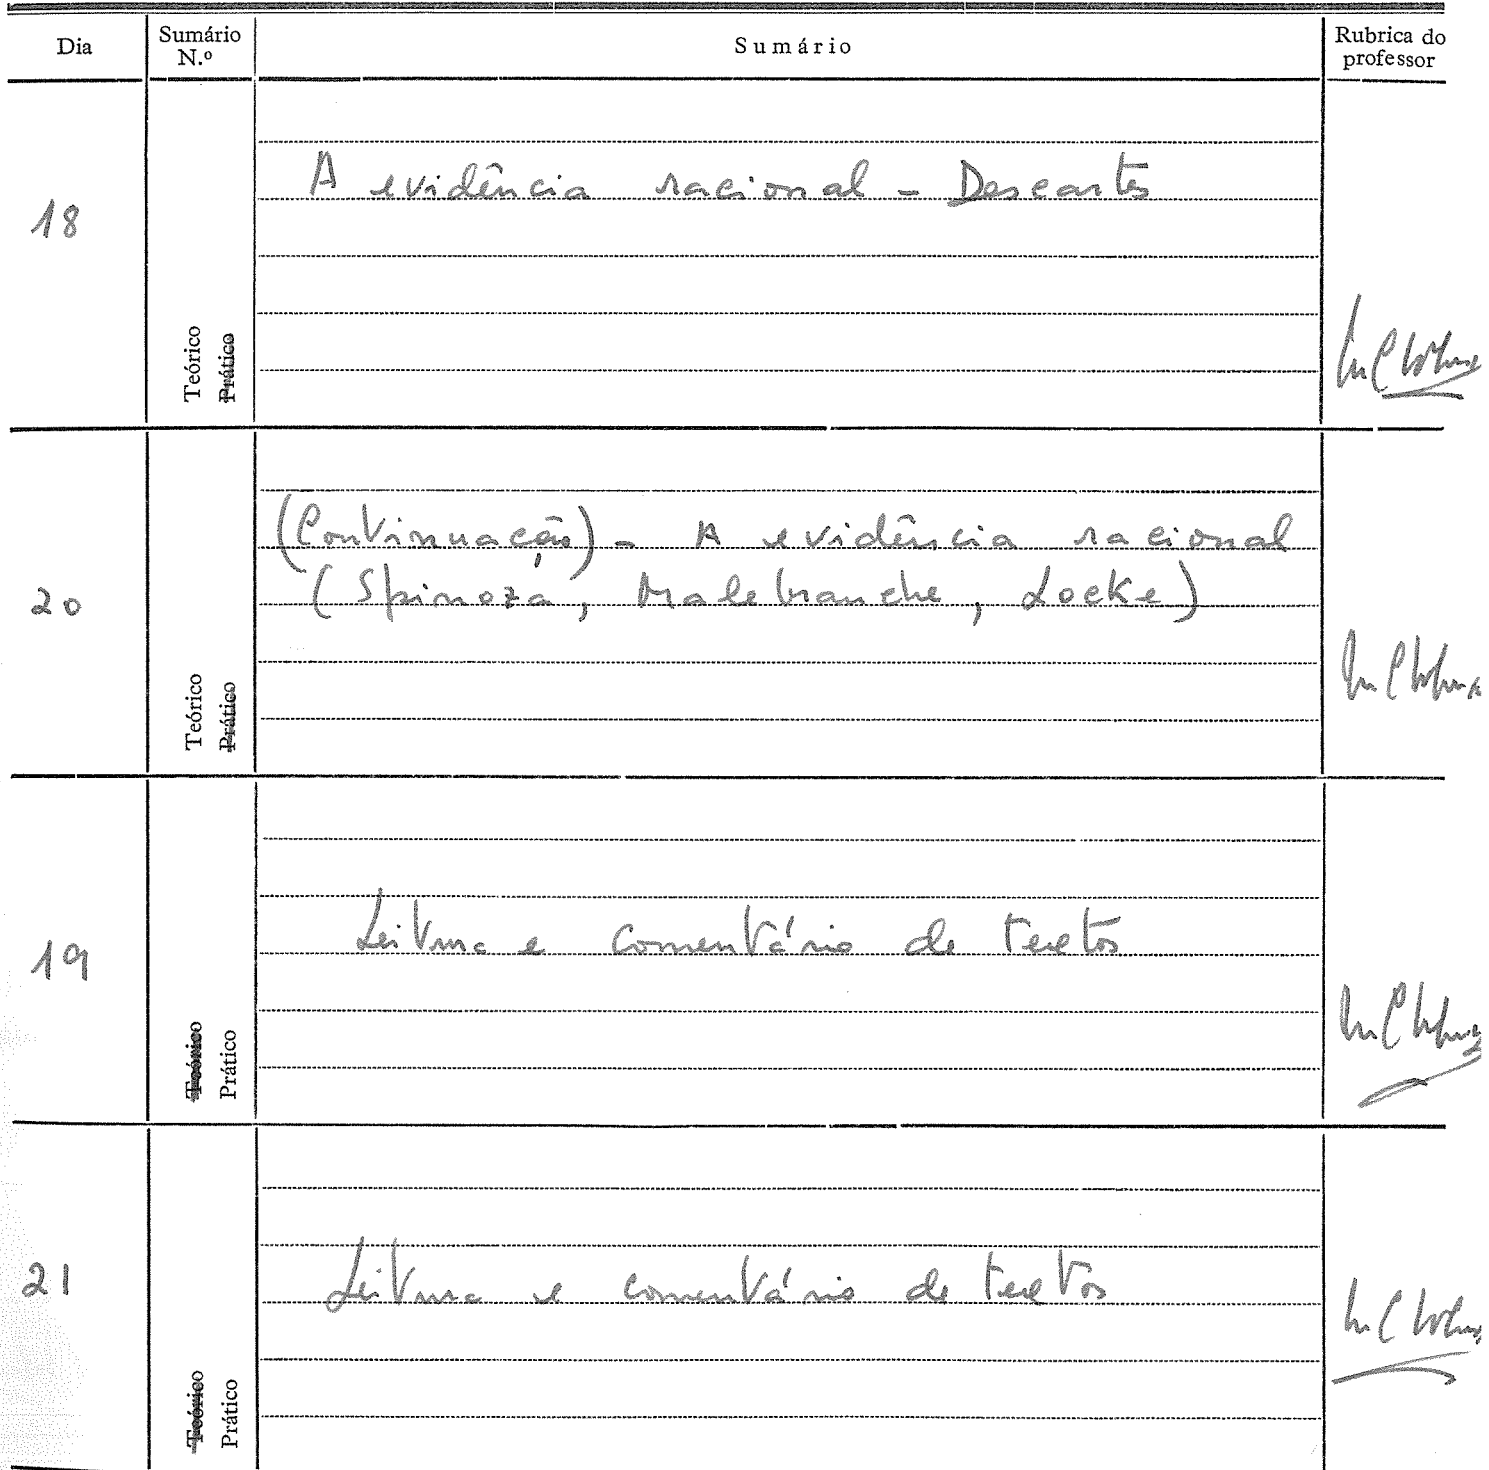 Dia
Sumário
N.º
Sumário
Rubrica do
professor
18
Teórico
Prático
A evidência racional - Descartes
20
Teórico
Prático
(Continuação) - A evidência racional
(Spinoza, Malebranche, Locke)
19
Teórico
Prático
Leitura e comentário de textos
21
Teórico
Prático
Leitura e comentário de textos